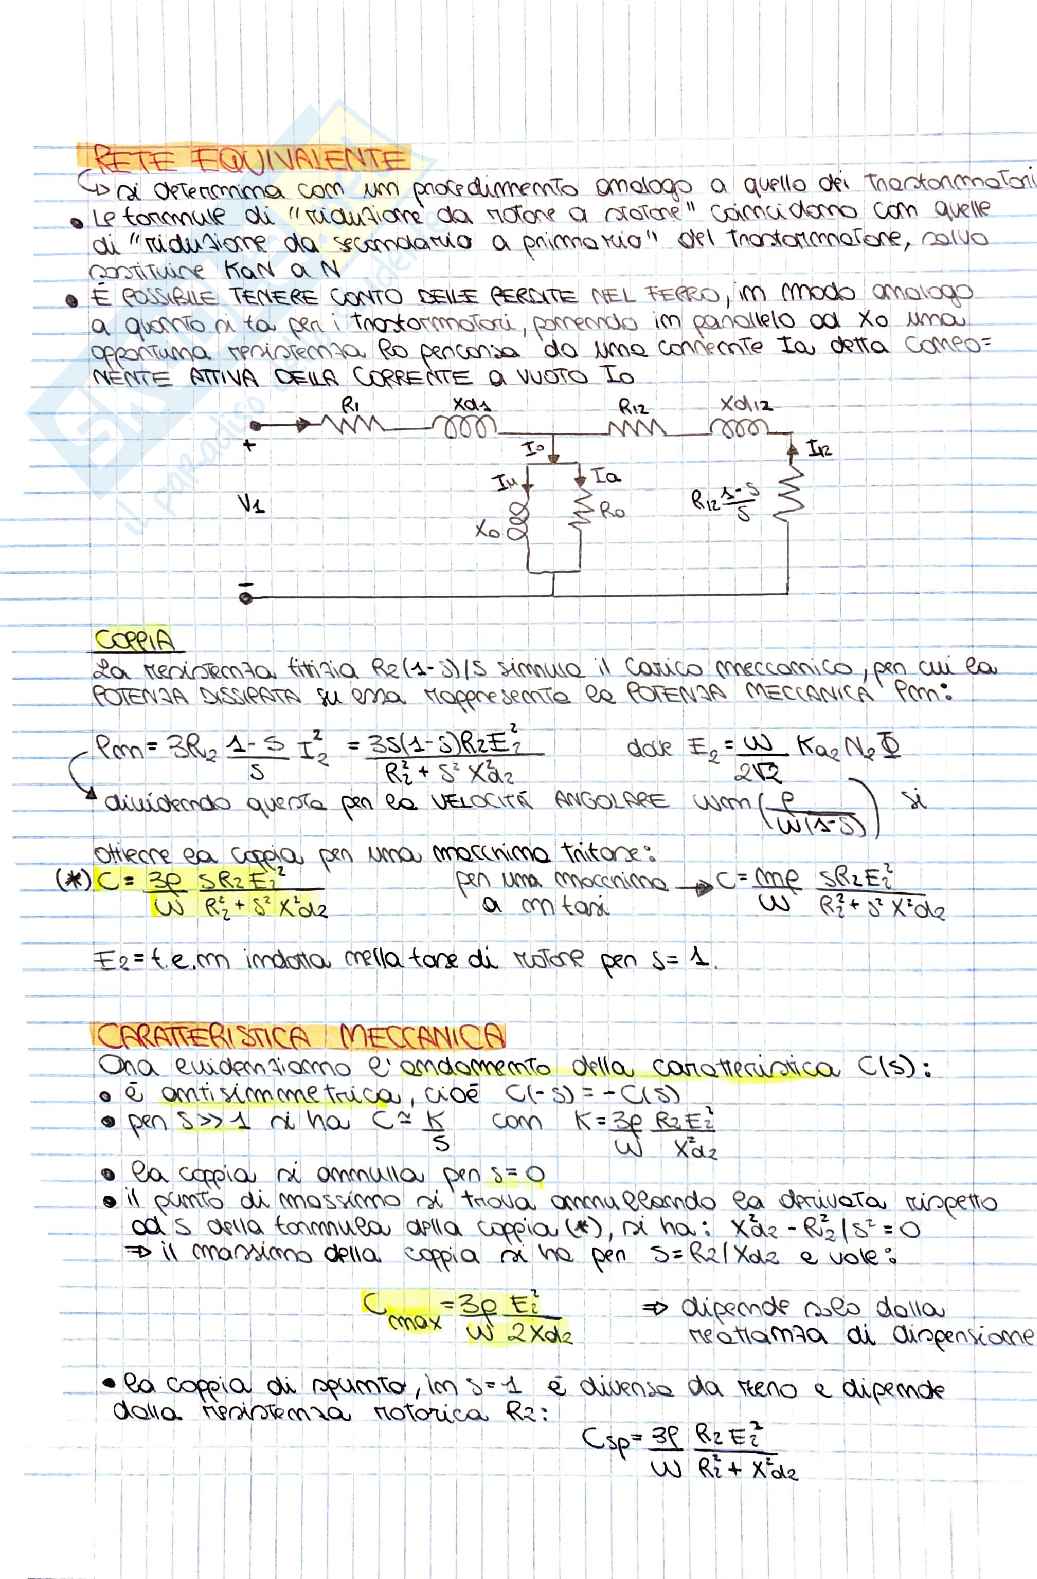 RETE EQUIVALENTE
↳ si determina con un procedimento analogo a quello dei trasformatori
• Le formule di "riduzione da rotore a statore" coincidono con quelle
di "riduzione da secondario a primario" del trasformatore, salvo
sostituire KaN a N
• È POSSIBILE TENERE CONTO DELLE PERDITE NEL FERRO, in modo analogo
a quanto si fa per i trasformatori, ponendo in parallelo ad X0 una
opportuna resistenza R0 percorsa da una corrente Ia detta COMPO=
NENTE ATTIVA DELLA CORRENTE a VUOTO I0
R1 Xd1 R12 Xd12
+ I0 I12
Iμ Ia
V1 X0 R0 R12 1-s/s
−
COPPIA
La resistenza fittizia R2(1-s)/s simula il carico meccanico, per cui la
POTENZA DISSIPATA su essa rappresenta la POTENZA MECCANICA Pm:
Pm = 3R2 (1-s)/s I2² = 3s(1-s)R2E2² / (R2² + s² X²d2) dove E2 = ω/(2√2) Ka2 N2 Φ
dividendo questa per la VELOCITÁ ANGOLARE ωm (p/(ω(1-s))) si
ottiene la coppia per una macchina trifase:
(*) C = 3p/ω sR2E2²/(R2² + s² X²d2) per una macchina → C = mp/ω sR2E2²/(R2² + s² X²d2)
a m fasi
E2 = f.e.m indotta nella fase di rotore per s = 1.
CARATTERISTICA MECCANICA
Ora evidenziamo l'andamento della caratteristica C(s):
• è antisimmetrica, cioé C(-s) = -C(s)
• per s >> 1 si ha C ≃ K/s con K = 3p/ω R2E2²/X²d2
• la coppia si annulla per s = 0
• il punto di massimo si trova annullando la derivata rispetto
ad s della formula della coppia (*), si ha: X²d2 - R2²/s² = 0
⇒ il massimo della coppia si ha per s = R2/Xd2 e vale:
Cmax = 3p/ω E2²/2Xd2 ⇒ dipende solo dalla
reattanza di dispersione
• la coppia di spunto, in s = 1 è diversa da zero e dipende
dalla resistenza rotorica R2:
Csp = 3p/ω R2E2²/(R2² + X²d2)